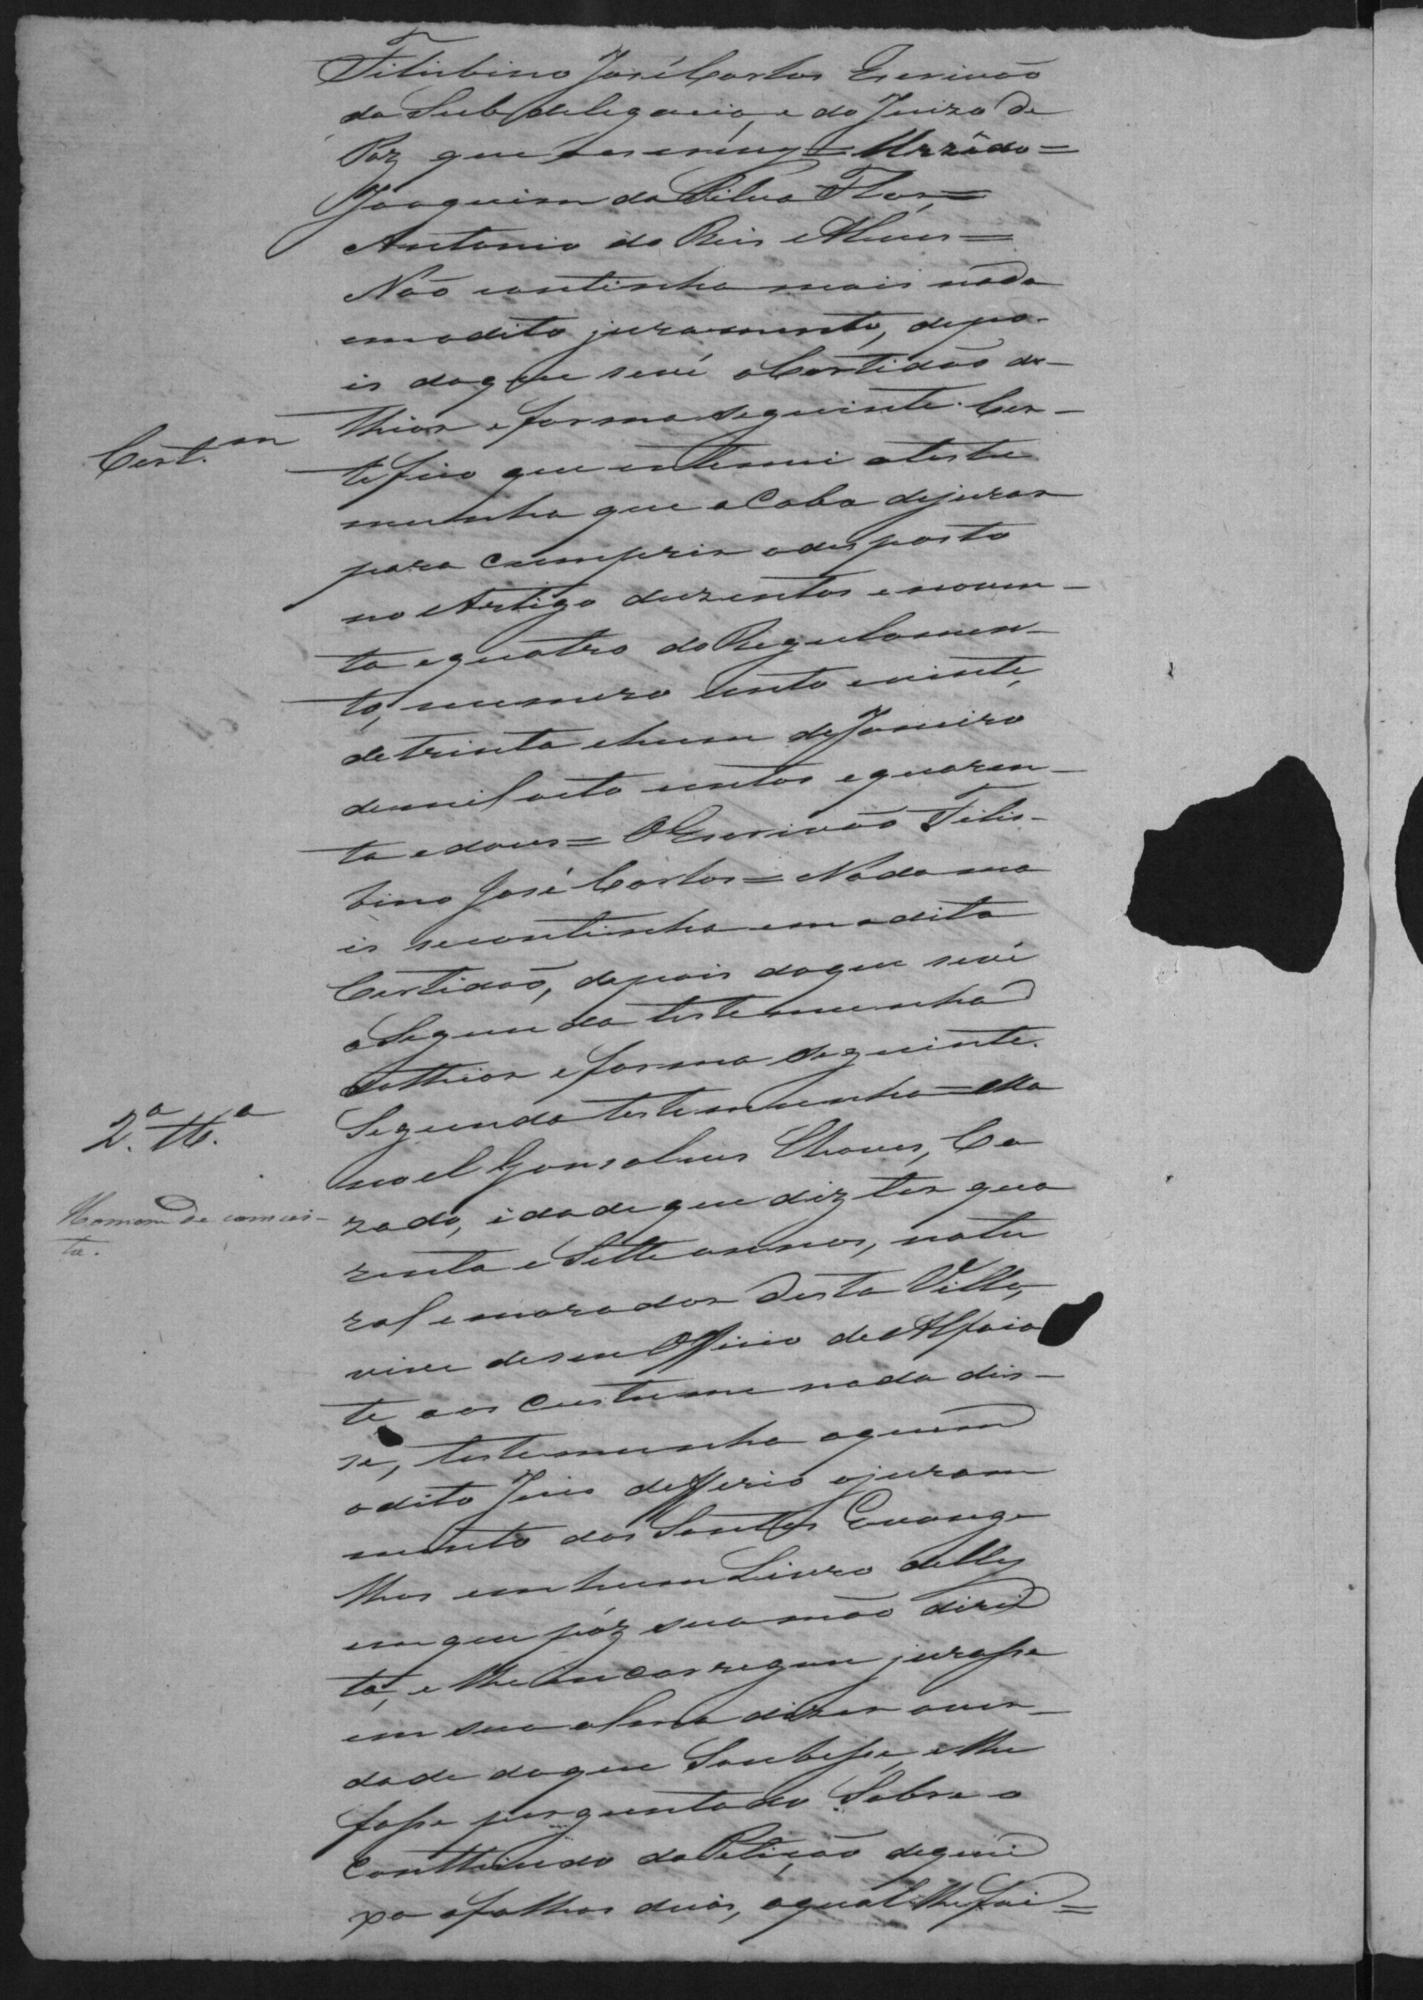 Filisbino José Carlos Escrivão
da Subdelegacia, e do Juizo de
Paz que o escrevy =
Joaquim da Silva Flor =
Antonio do Reis e Alves =
Não continha mais nada
em o dito juramento, depo-
is do que se vê a Certidão do
theor e forma seguinte. Cer-
Cert.am
tefico que entemei a teste
munha que acaba de jurar
para cumprir o desposto
no Artigo duzentos e noven-
ta e quatro do Regulamen-
to, numero cento e vinte,
de trinta e hum de Janeiro
de mil oito centos e quaren-
ta e dous = O Escrivão Filis-
bino José Carlos = Nada ma
is se continha em a dita
Certidão, depois do que se vê
a Segunda testemunha
do theor e forma seguinte.
2.a tt.a
Segunda testemunha = Ma
noel Gonsalves Chaves, Ca
zado, idade que diz ter qua
renta e Sette annos, natu
ral e morador desta Villa,
vive de seu Officio de Alfaia
te, aos custume nada dis-
se, testemunha a quem
o dito Juis defferio o juram
mento dos Santos Evange
lhos em hum Livro delles
em que pôz sua mão direi
ta, e lhe encarregou jurasse
em sua alma dizer a ver-
dade do que Soubesse, e lhe
fosse perguntado Sobre o
Conttheudo da Petição de quei
xa a folhas duas, a qual lhe foi =